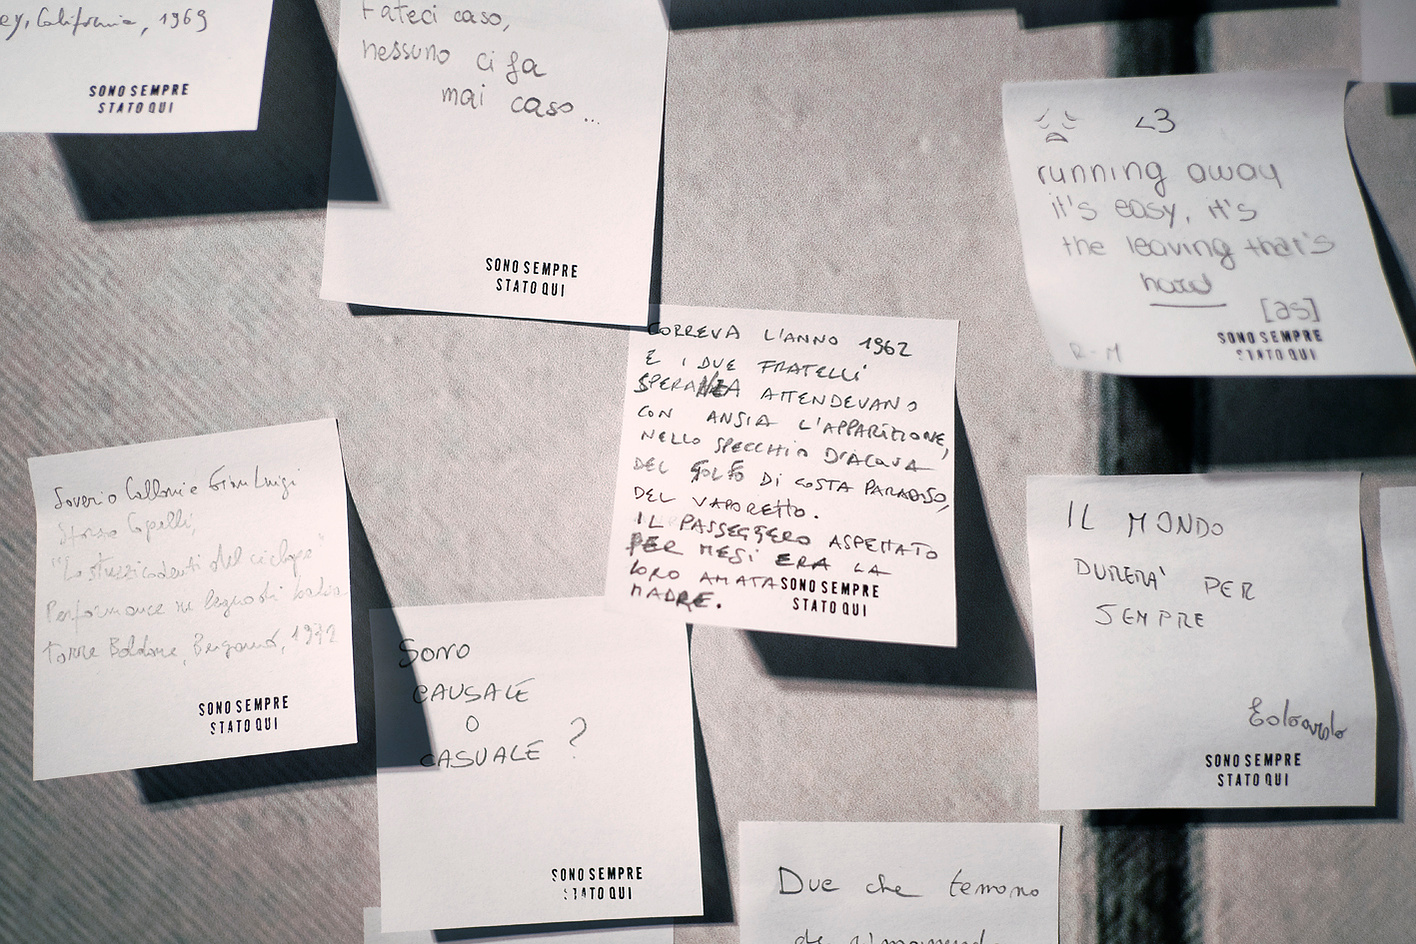 California, 1969
SONO SEMPRE
STATO QUI
Fateci caso,
nessuno ci fa
mai caso...
SONO SEMPRE
STATO QUI
<3
running away
it's easy, it's
the leaving that's
hard
[as]
R-M
SONO SEMPRE
STATO QUI
CORREVA L'ANNO 1962
E I DUE FRATELLI
SPERANZA ATTENDEVANO
CON ANSIA L'APPARIZIONE,
NELLO SPECCHIO D'ACQUA
DEL GOLFO DI COSTA PARADISO,
DEL VAPORETTO.
IL PASSEGGERO ASPETTATO
PER MESI ERA LA
LORO AMATA
MADRE.
SONO SEMPRE
STATO QUI
Gian Luigi
"Lo stuzzicadenti del ciclope"
Performance su legno di balsa
Torre Boldone, Bergamo, 1972
SONO SEMPRE
STATO QUI
Sono
CAUSALE
O
CASUALE ?
SONO SEMPRE
STATO QUI
IL MONDO
DURERA' PER
SEMPRE
Edoardo
SONO SEMPRE
STATO QUI
Due che temono